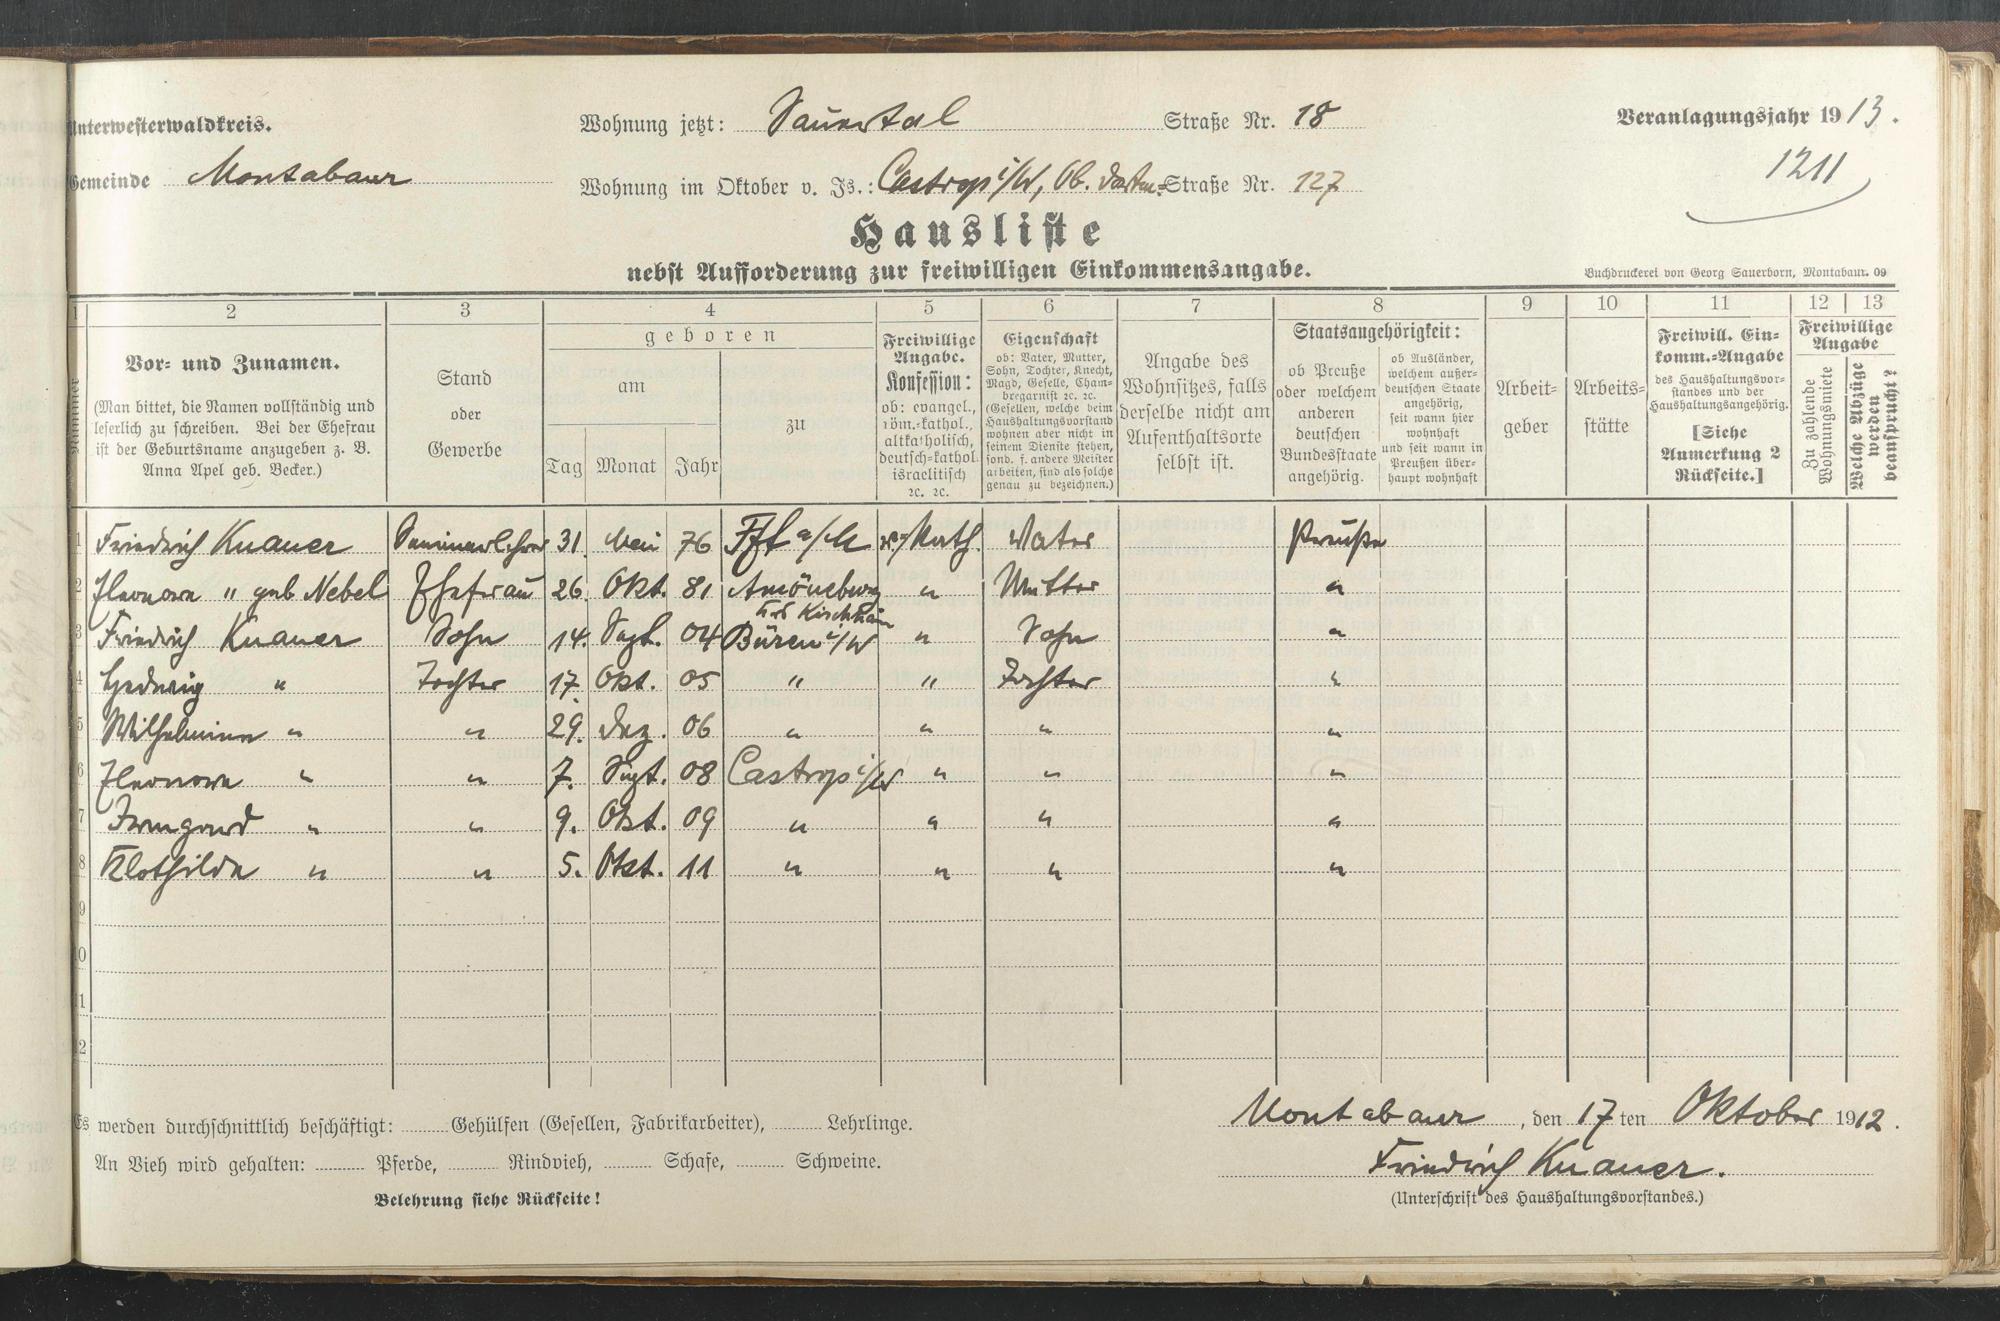 Unterwesterwaldkreis.
Wohnung jetzt: Sauertal Straße Nr. 18
Veranlagungsjahr 1913.
Gemeinde Montabaur
Wohnung im Oktober v. Js.: Castrop i/W, Ob. Straße Nr. 127
1211
Hausliste
nebst Aufforderung zur freiwilligen Einkommensangabe.
Buchdruckerei von Georg Sauerborn, Montabaur. 09
1 2 3 4 5 6 7 8 9 10 11 12 13
Nummer
Vor- und Zunamen.
(Man bittet, die Namen vollständig und
leserlich zu schreiben. Bei der Ehefrau
ist der Geburtsname anzugeben z. B.
Anna Apel geb. Becker.)
Stand
oder
Gewerbe
geboren
am
Tag Monat Jahr
zu
Freiwillige
Angabe.
Konfession:
ob: evangel.,
röm.-kathol.,
altkatholisch,
deutsch-kathol.
israelitisch
ꝛc. ꝛc.
Eigenschaft
ob: Vater, Mutter,
Sohn, Tochter, Knecht,
Magd, Geselle, Cham-
bregarnist ꝛc. ꝛc.
(Gesellen, welche beim
Haushaltungsvorstand
wohnen aber nicht in
seinem Dienste stehen,
sond. f. andere Meister
arbeiten, sind als solche
genau zu bezeichnen.)
Angabe des
Wohnsitzes, falls
derselbe nicht am
Aufenthaltsorte
selbst ist.
Staatsangehörigkeit:
ob Preuße
oder welchem
anderen
deutschen
Bundesstaate
angehörig.
ob Ausländer,
welchem außer-
deutschen Staate
angehörig,
seit wann hier
wohnhaft
und seit wann in
Preußen über-
haupt wohnhaft
Arbeit-
geber
Arbeits-
stätte
Freiwill. Ein-
komm.-Angabe
des Haushaltungsvor-
standes und der
Haushaltungsangehörig.
[Siehe
Anmerkung 2
Rückseite.]
Freiwillige
Angabe
Zu zahlende
Wohnungsmiete
Welche Abzüge
werden
beansprucht?
1 Friedrich Knauer Seminarlehrer 31. Mai 76 Fft a/M r./Kath. Vater Preuße
2 Eleonora " geb. Nebel Ehefrau 26. Okt. 81 Amöneburg " Mutter "
Krs Kirchhain
3 Friedrich Knauer Sohn 14. Sept. 04 Büren i/W " Sohn "
4 Hedwig " Tochter 17. Okt. 05 " " Tochter "
5 Wilhelmine " " 29. Dez. 06 " " " "
6 Eleonore " " 7. Sept. 08 Castrop i/W " " "
7 Irmgard " " 9. Okt. 09 " " " "
8 Klothilde " " 5. Okt. 11 " " " "
9
10
11
12
Es werden durchschnittlich beschäftigt: Gehülfen (Gesellen, Fabrikarbeiter), Lehrlinge.
An Vieh wird gehalten: Pferde, Rindvieh, Schafe, Schweine.
Belehrung siehe Rückseite!
Montabaur, den 17ten Oktober 1912.
Friedrich Knauer.
(Unterschrift des Haushaltungsvorstandes.)